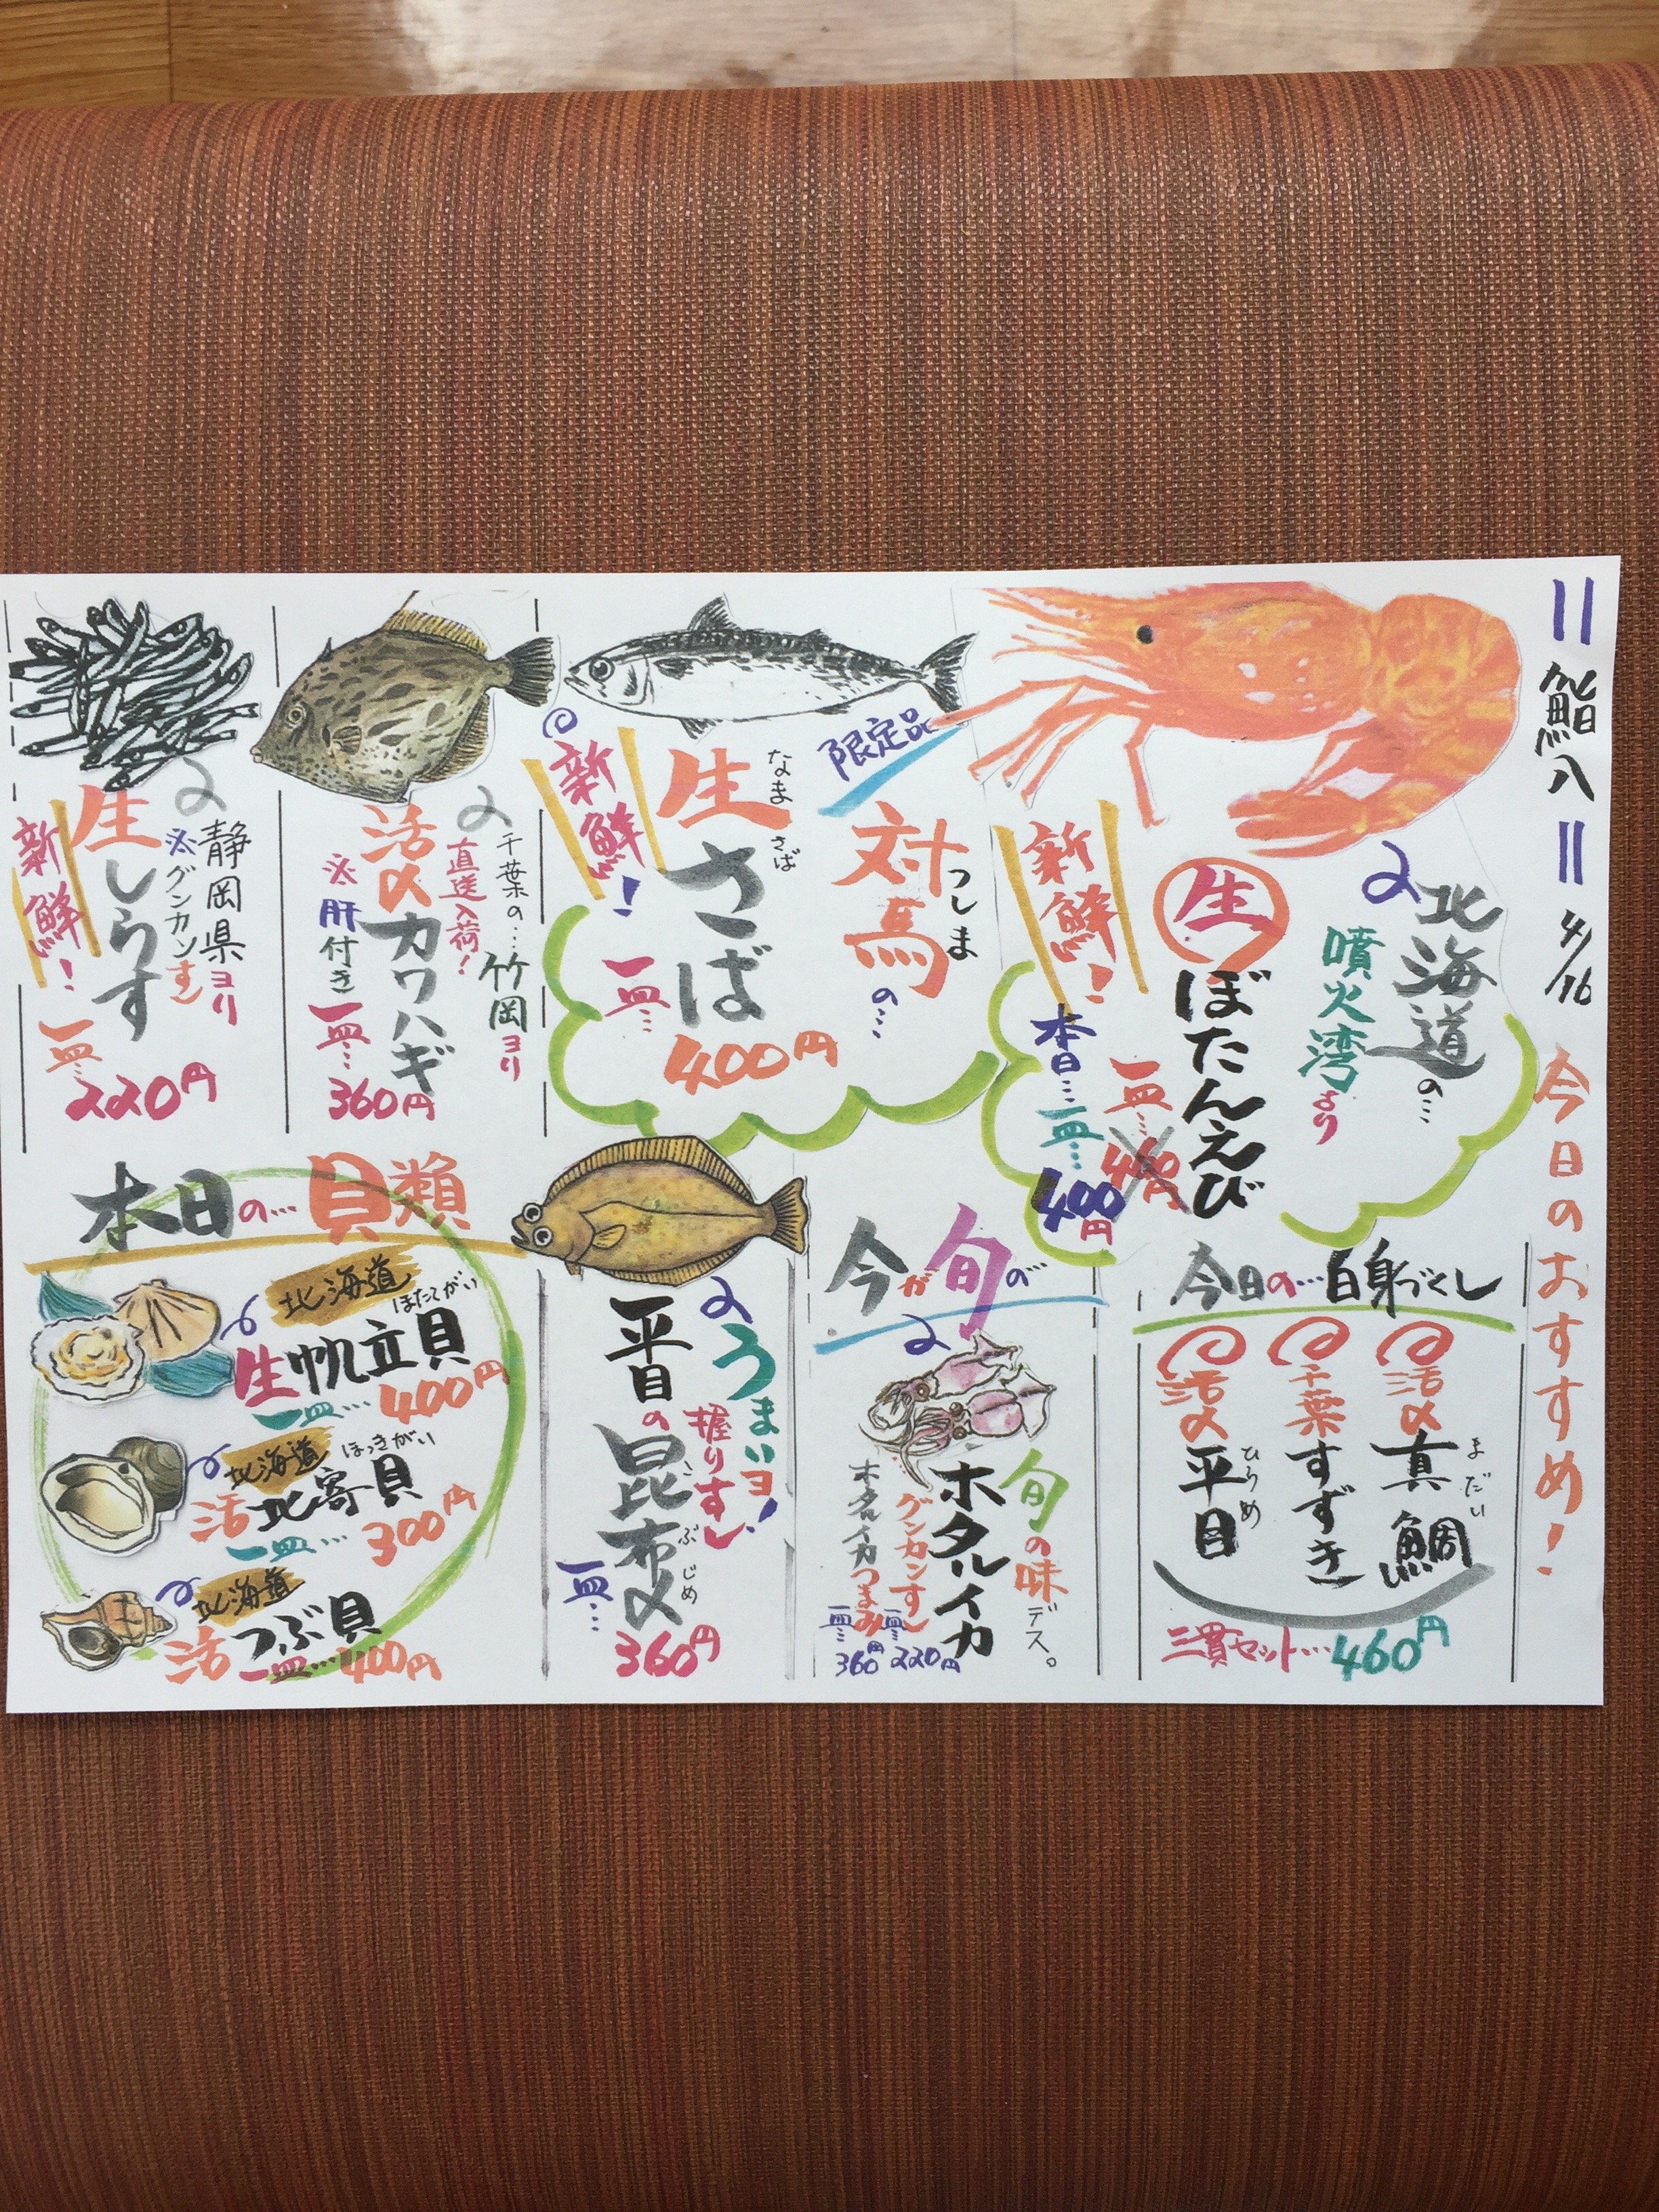 鮨八 4/16 今日のおすすめ!
北海道の…
噴火湾より
生ぼたんえび
一皿… 円
新鮮!
本日…一皿…400円
限定品
対馬の…
つしま
生さば
なま さば
400円
新鮮!
一皿…
千葉の…竹岡ヨリ
直送入荷!
活〆カワハギ
※肝付き
一皿…360円
静岡県ヨリ
※グンカンすし
生しらす
新鮮!
一皿…220円
今日の…白身づくし
活〆真鯛
まだい
千葉すずき
活〆平目
ひらめ
三貫セット…460円
今が旬の…
旬の味デス。
ホタルイカ
グンカンすし
一皿…220円
ホタルイカつまみ
一皿…360円
うまいヨ!
握りすし
平目の昆布〆
こぶじめ
一皿…
360円
本日の…貝類
北海道
ほたてがい
生帆立貝
一皿…400円
北海道
ほっきがい
活北寄貝
一皿…300円
北海道
活つぶ貝
一皿…400円